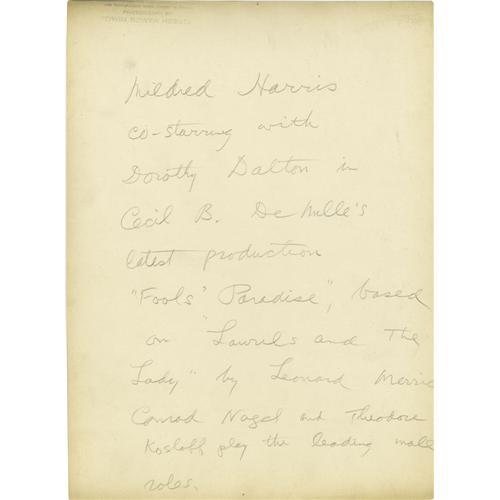 PHOTOGRAPH BY
EDWIN BOWER HESSER
Mildred Harris
co-starring with
Dorothy Dalton in
Cecil B. De Mille's
latest production
"Fools' Paradise", based
on "Laurels and The
Lady" by Leonard Merric
Conrad Nagel and Theodore
Kosloff play the leading male
roles.